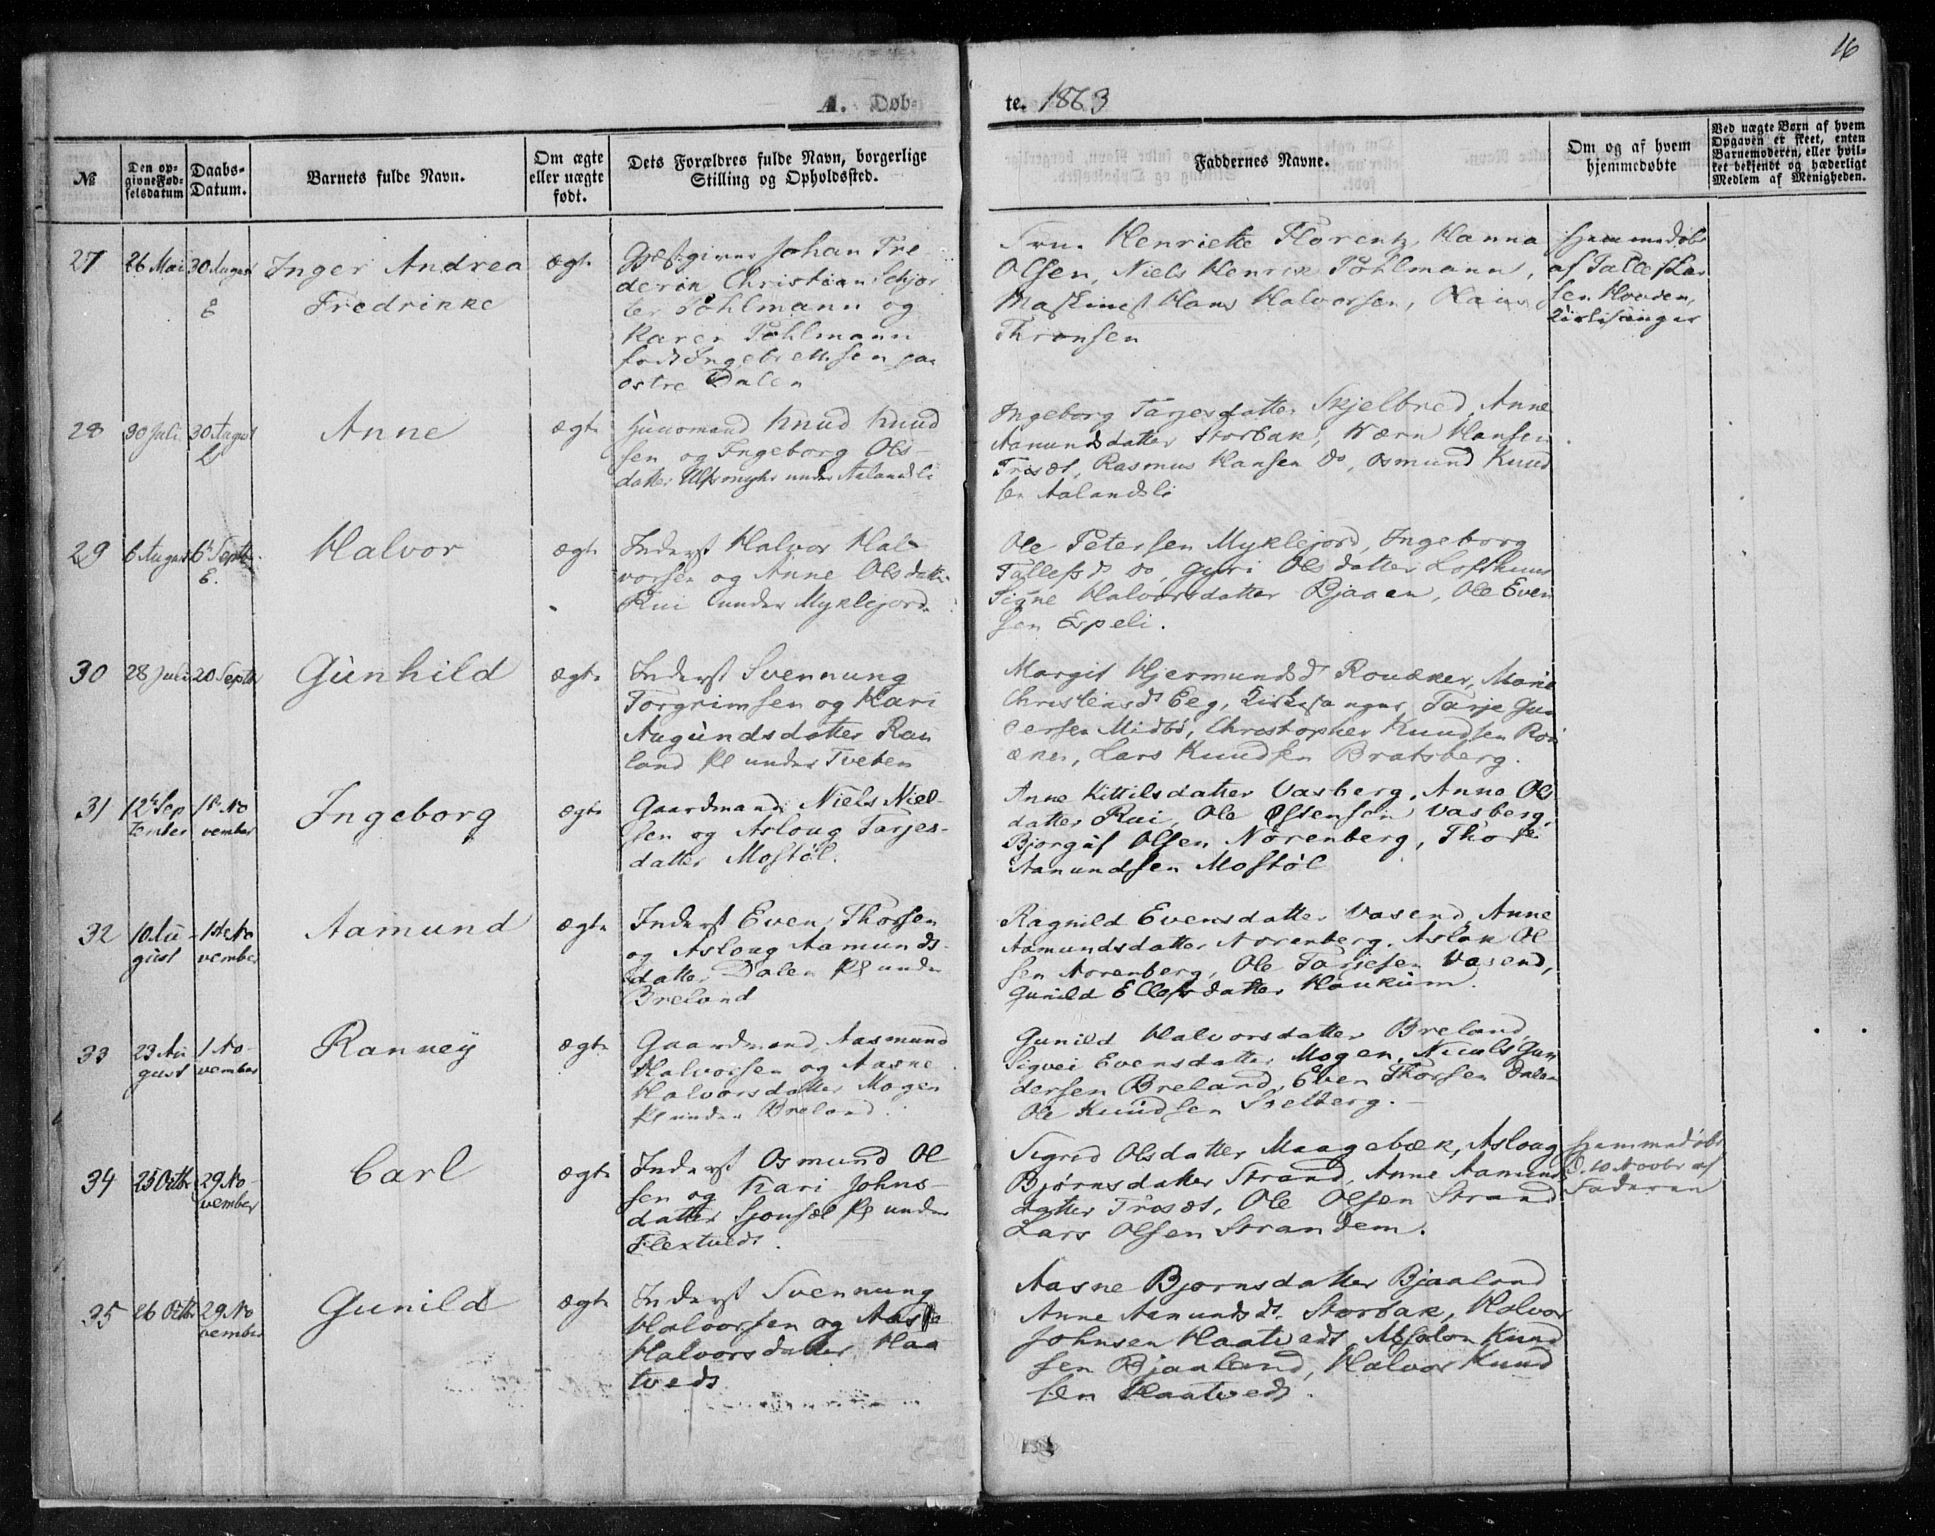 16
A. Døb-
te. 1863
№
Den op-
givne Fød-
selsdatum
Daabs-
Datum.
Barnets fulde Navn.
Om ægte
eller uægte
født.
Dets Forældres fulde Navn, borgerlige
Stilling og Opholdssted.
Faddernes Navne.
Om og af hvem
hjemmedøbte
Ved uægte Børn af hvem
Opgaven er skeet, enten
Barnemoderen, eller hvil-
ket bekjendt og hæderligt
Medlem af Menigheden.
27
26 Mai
30 August
E
Inger Andrea
Fredrikke
ægte
Gjæstgiver Johan Fre
derik Christian
Pohlmann og
Karen Pohlmann
født Ingebrettsen paa
østre Dalen
Henriette Florentz, Hanna
Olsen, Niels Henrik Pohlmann,
Maskinest Hans Halvorsen, Hans
Thronsen
Hjemmedøbt
af Tallef Lar
sen Hovden,
Kirkesanger
28
30 Juli
30 August
Anne
ægte
Huusmand Knud Knud
sen og Ingeborg Ols-
datter under Aalandsli
Ingeborg Tarjesdatter Skjelbred, Anne
Aamundsdatter Storbak, Hansen
Trisæt, Rasmus Hansen do, Osmund Knud
sen Aalandsli
29
6 August
6te Septbr.
E.
Halvor
ægte
Inderst Halvor Hal
vorsen og Anne Olsdatter
Rui under Myklejord
Ole Petersen Myklejord, Ingeborg
Tallefsd do, Gyri Olsdatter Lofthuus
Signe Halvorsdatter Bjaaen, Ole Even
sen Espeli.
30
28 Juli
20 Septbr
Gunhild
ægte
Inderst Svennung
Torgrimsen og Kari
Augundsdatter Rau
land Pl under Tveten
Margit Hjermundsd Rouaker, Marie
Christensd Eeg, Kirkesanger Tarje Gun
dersen Midbø, Christopher Knudsen Rou
aker, Lars Knudsen Bratsberg.
31
12te Sep
tember
1te No
vember
Ingeborg
ægte
Gaardmand Niels Niel-
sen og Asloug Tarjes-
datter Mostøl.
Anne Kittilsdatter Vasberg, Anne Ols
datter Rui, Ole Østensen Vasberg,
Bjorguf Olsen Norenberg, Thore
Aamundsen Mostøl
32
10 Au
gust
1ste No
vember
Aamund
ægte
Inderst Even Thorsen
og Asloug Aamunds-
datter Dalen Pl under
Breland
Ragnild Evensdatter Vasend, Anne
Aamundsdatter Norenberg, Aslak Ol
sen Norenberg, Ole Tarjesen Vasend,
Gunild Ellefsdatter Haukum.
33
23 Au
gust
1 No-
vember
Ranvey
ægte
Gaardmand Aasmund
Halvorsen og Aasne
Halvorsdatter Mogen
Pl under Breland.
Gunild Halvorsdatter Breland,
Sigvei Evensdatter Mogen, Niculs Gun
dersen Breland, Even Thorsen Dalen
Ole Knudsen Sselberg.
34
25 Octbr
29 No-
vember
Carl
ægte
Inderst Osmund Ol
sen og Kari Johns-
datter Sjonsæt Pl under
Flextvedt.
Sigrid Olsdatter Maagebæk, Asloug
Bjørnsdatter Strand, Anne Aamunds
datter Trosæt, Ole Olsen Strand
Lars Olsen Strandem.
Hjemmedøbt
d. 10 Novbr af
Faderen
35
26 Octbr
29 No
vember
Gunild
ægte
Inderst Svennung
Halvorsen og Aasse
Halvorsdatter Haa
tvedt
Aasne Bjornsdatter Bjaaland
Anne Aamundsdt. Storbak, Halvor
Johnsen Haatvedt, Absalon Knud
sen Bjaaland, Halvor Knud
sen Haatvedt.